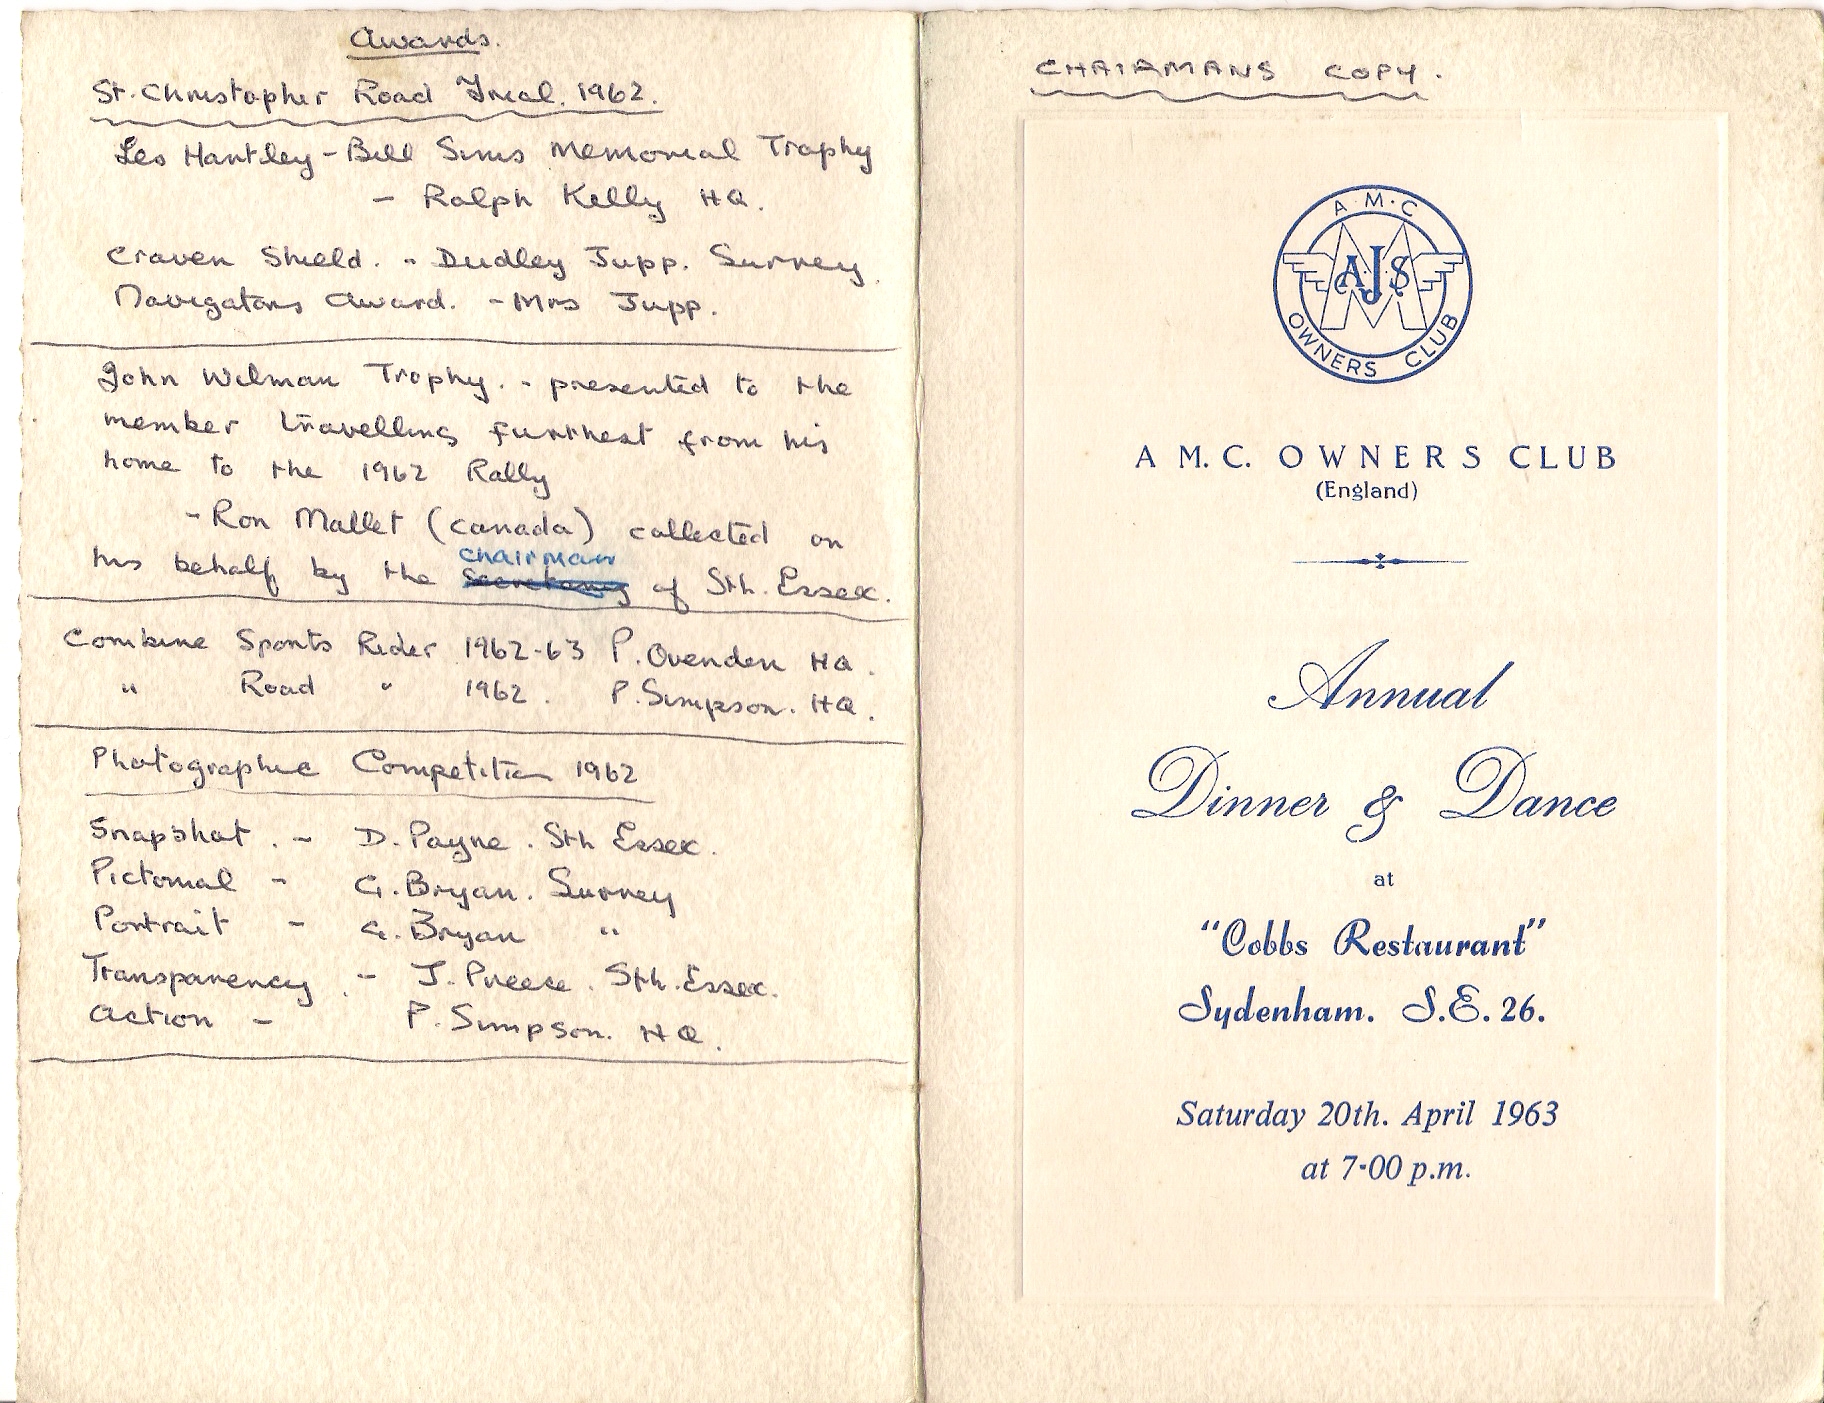 Awards.
St. Christopher Road Trial. 1962.
Les Hartley - Bill Sims Memorial Trophy
- Ralph Kelly HQ.
Craven Shield. - Dudley Jupp. Surrey.
Navigators Award. - Mrs Jupp.
John Wilman Trophy. - presented to the
member travelling furthest from his
home to the 1962 Rally
- Ron Mallet (Canada) collected on
chairman
his behalf by the secretary of Sth. Essex.
Combine Sports Rider 1962-63 P. Ovenden HQ.
" Road " 1962. P. Simpson. HQ.
Photographic Competition 1962
Snapshot. - D. Payne. Sth Essex.
Pictorial - G. Bryan. Surrey
Portrait - G. Bryan "
Transparency. - J. Preece. Sth. Essex.
Action - P. Simpson. HQ.
CHAIRMANS COPY.
A·M·C
AJS
M
OWNERS CLUB
A M. C. OWNERS CLUB
(England)
Annual
Dinner & Dance
at
"Cobbs Restaurant"
Sydenham. S.E. 26.
Saturday 20th. April 1963
at 7-00 p.m.